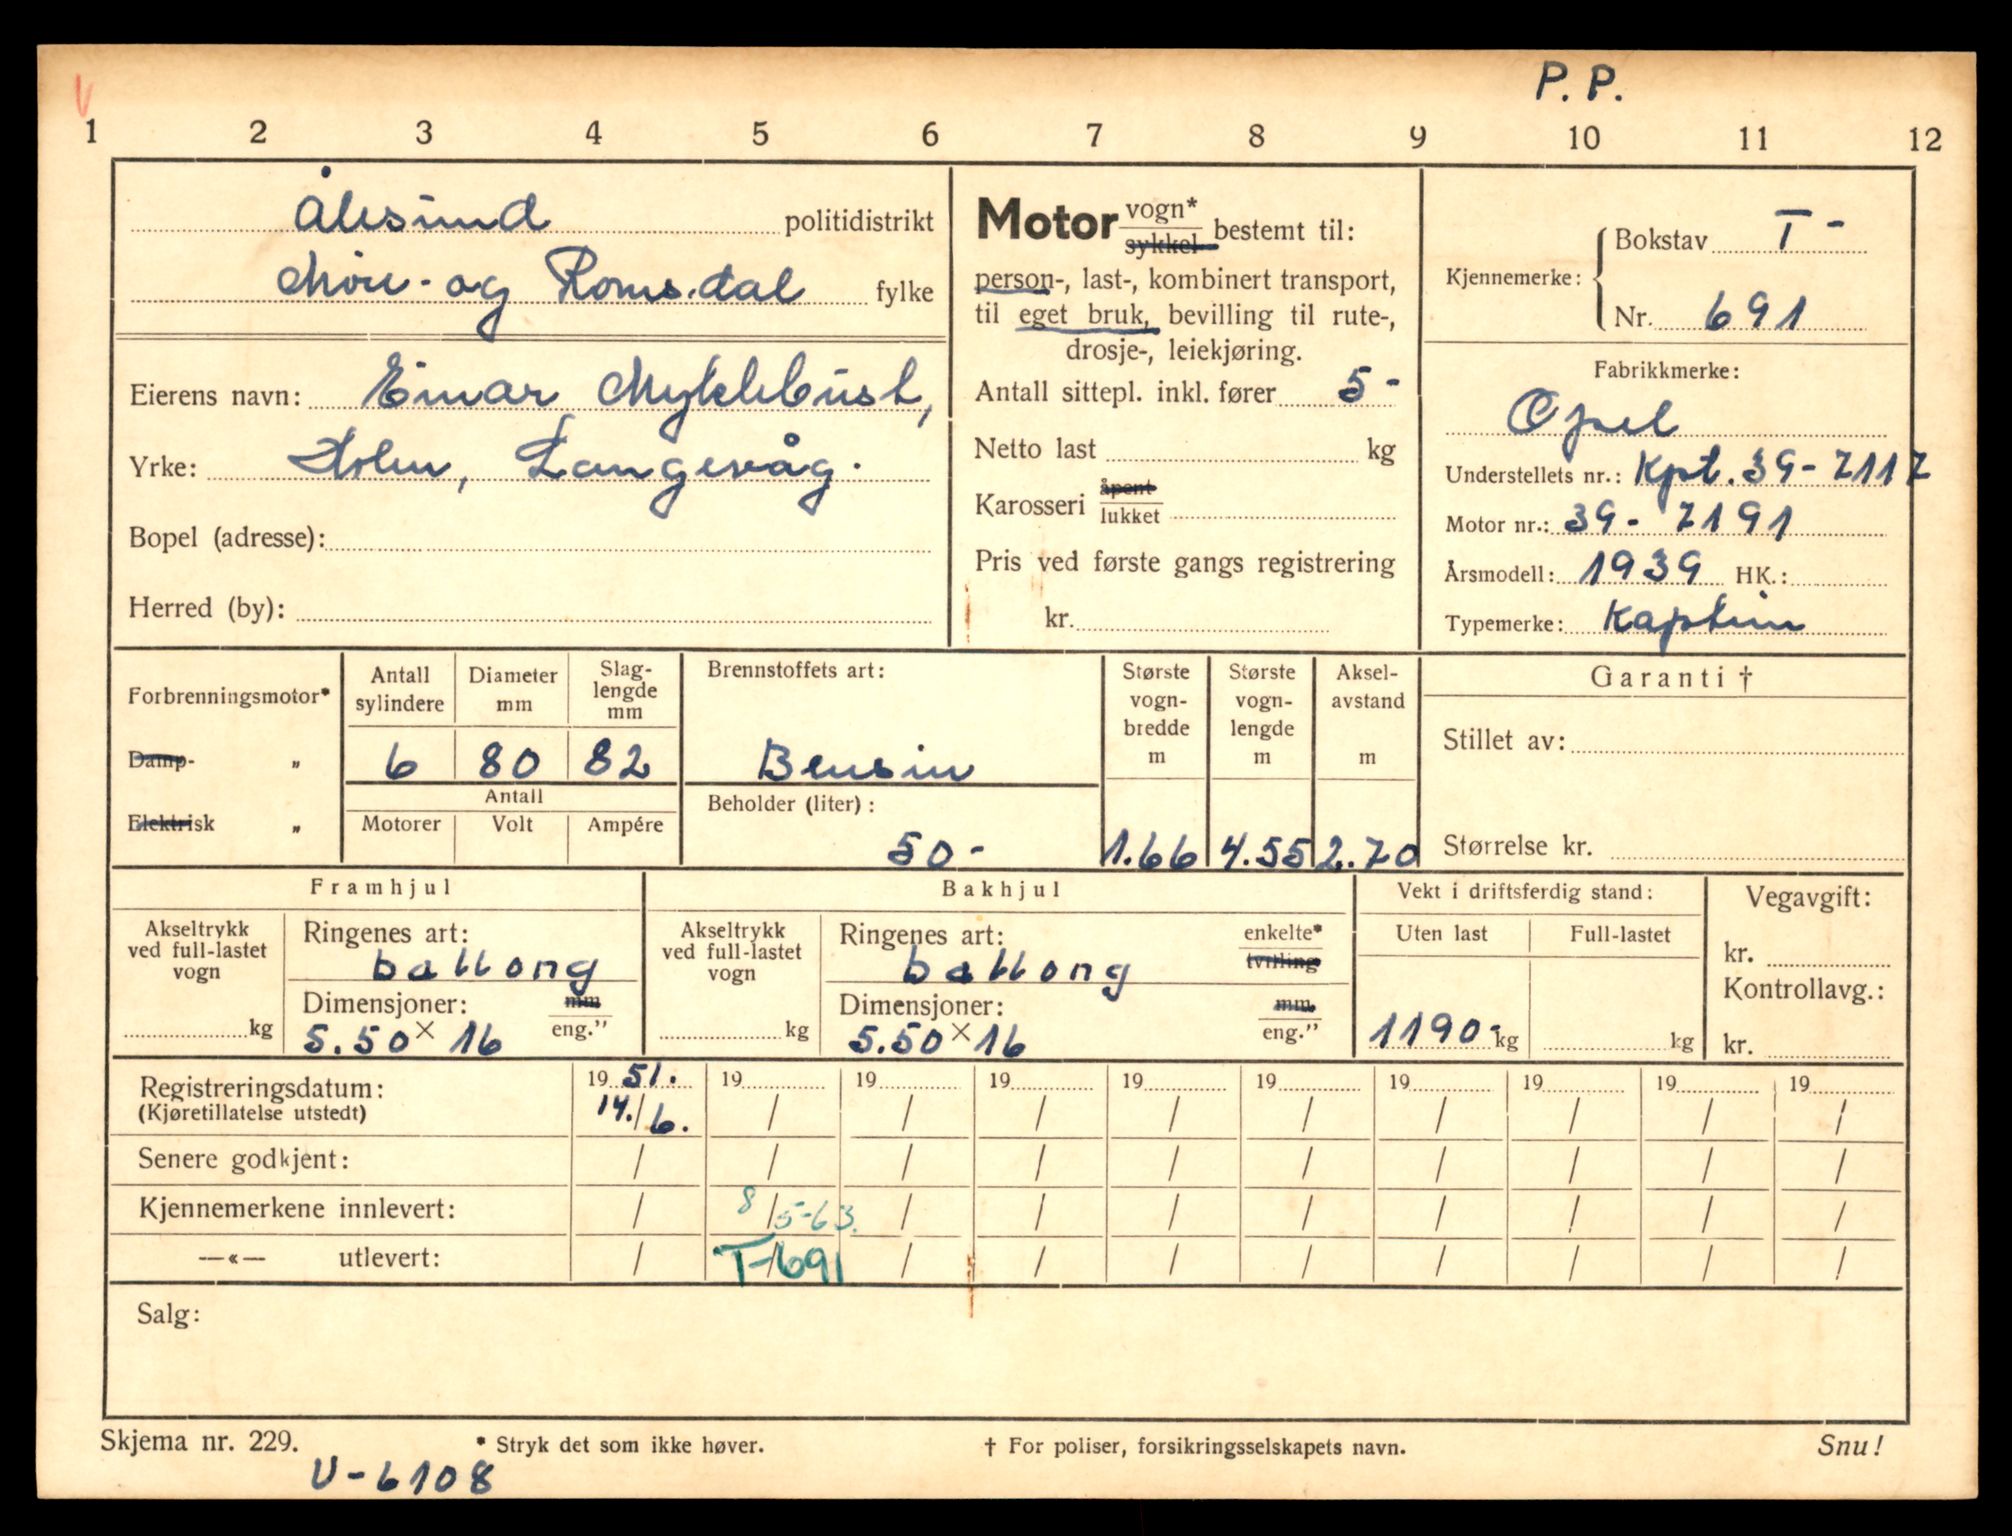 P. P.
1 2 3 4 5 6 7 8 9 10 11 12
Ålesund politidistrikt
Møre- og Romsdal fylke
Eierens navn: Einar Myklebust,
Yrke: Holen, Langevåg.
Bopel (adresse):
Herred (by):
Motor vogn* sykkel bestemt til:
person-, last-, kombinert transport,
til eget bruk, bevilling til rute-,
drosje-, leiekjøring.
Antall sittepl. inkl. fører 5-
Netto last kg
Karosseri åpent lukket
Pris ved første gangs registrering
kr.
Kjennemerke: Bokstav T-
Nr. 691
Fabrikkmerke:
Opel
Understellets nr.: Kpt. 39-7117
Motor nr.: 39-7191
Årsmodell: 1939 HK.:
Typemerke: Kaptein
Forbrenningsmotor*
Damp- „
Elektrisk „
Antall sylindere
Diameter mm
Slag-lengde mm
6 80 82
Antall
Motorer Volt Ampére
Brennstoffets art:
Bensin
Beholder (liter):
50-
Største vogn-bredde m
1.66
Største vogn-lengde m
4.55
Aksel-avstand m
2.70
Garanti †
Stillet av:
Størrelse kr.
Framhjul
Akseltrykk ved full-lastet vogn
kg
Ringenes art:
ballong
Dimensjoner: mm eng.”
5.50 × 16
Bakhjul
Akseltrykk ved full-lastet vogn
kg
Ringenes art: enkelte* tvilling
ballong
Dimensjoner: mm. eng.”
5.50 × 16
Vekt i driftsferdig stand:
Uten last Full-lastet
1190- kg kg
Vegavgift:
kr.
Kontrollavg.:
kr.
Registreringsdatum: 19 51. 19 19 19 19 19 19 19 19 19
(Kjøretillatelse utstedt) 14./6. / / / / / / / / /
Senere godkjent: / / / / / / / / / /
Kjennemerkene innlevert: / 8/5-63. / / / / / / / /
—«— utlevert: / T-691 / / / / / / / /
Salg:
Skjema nr. 229. * Stryk det som ikke høver. † For poliser, forsikringsselskapets navn. Snu!
U-6108